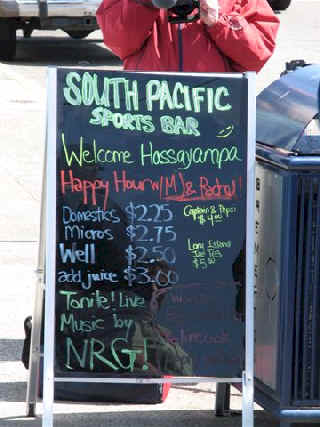 SOUTH PACIFIC
SPORTS BAR
Welcome Hassayampa
Happy Hour w/(M) & Rachel!
Domestics $2.25
Micros $2.75
Well $2.50
add juice $3.00
Captain & Pepsi
$4.00
Long Island
Ice Teas
$5.00
Tonite! Live
Music by
NRG!